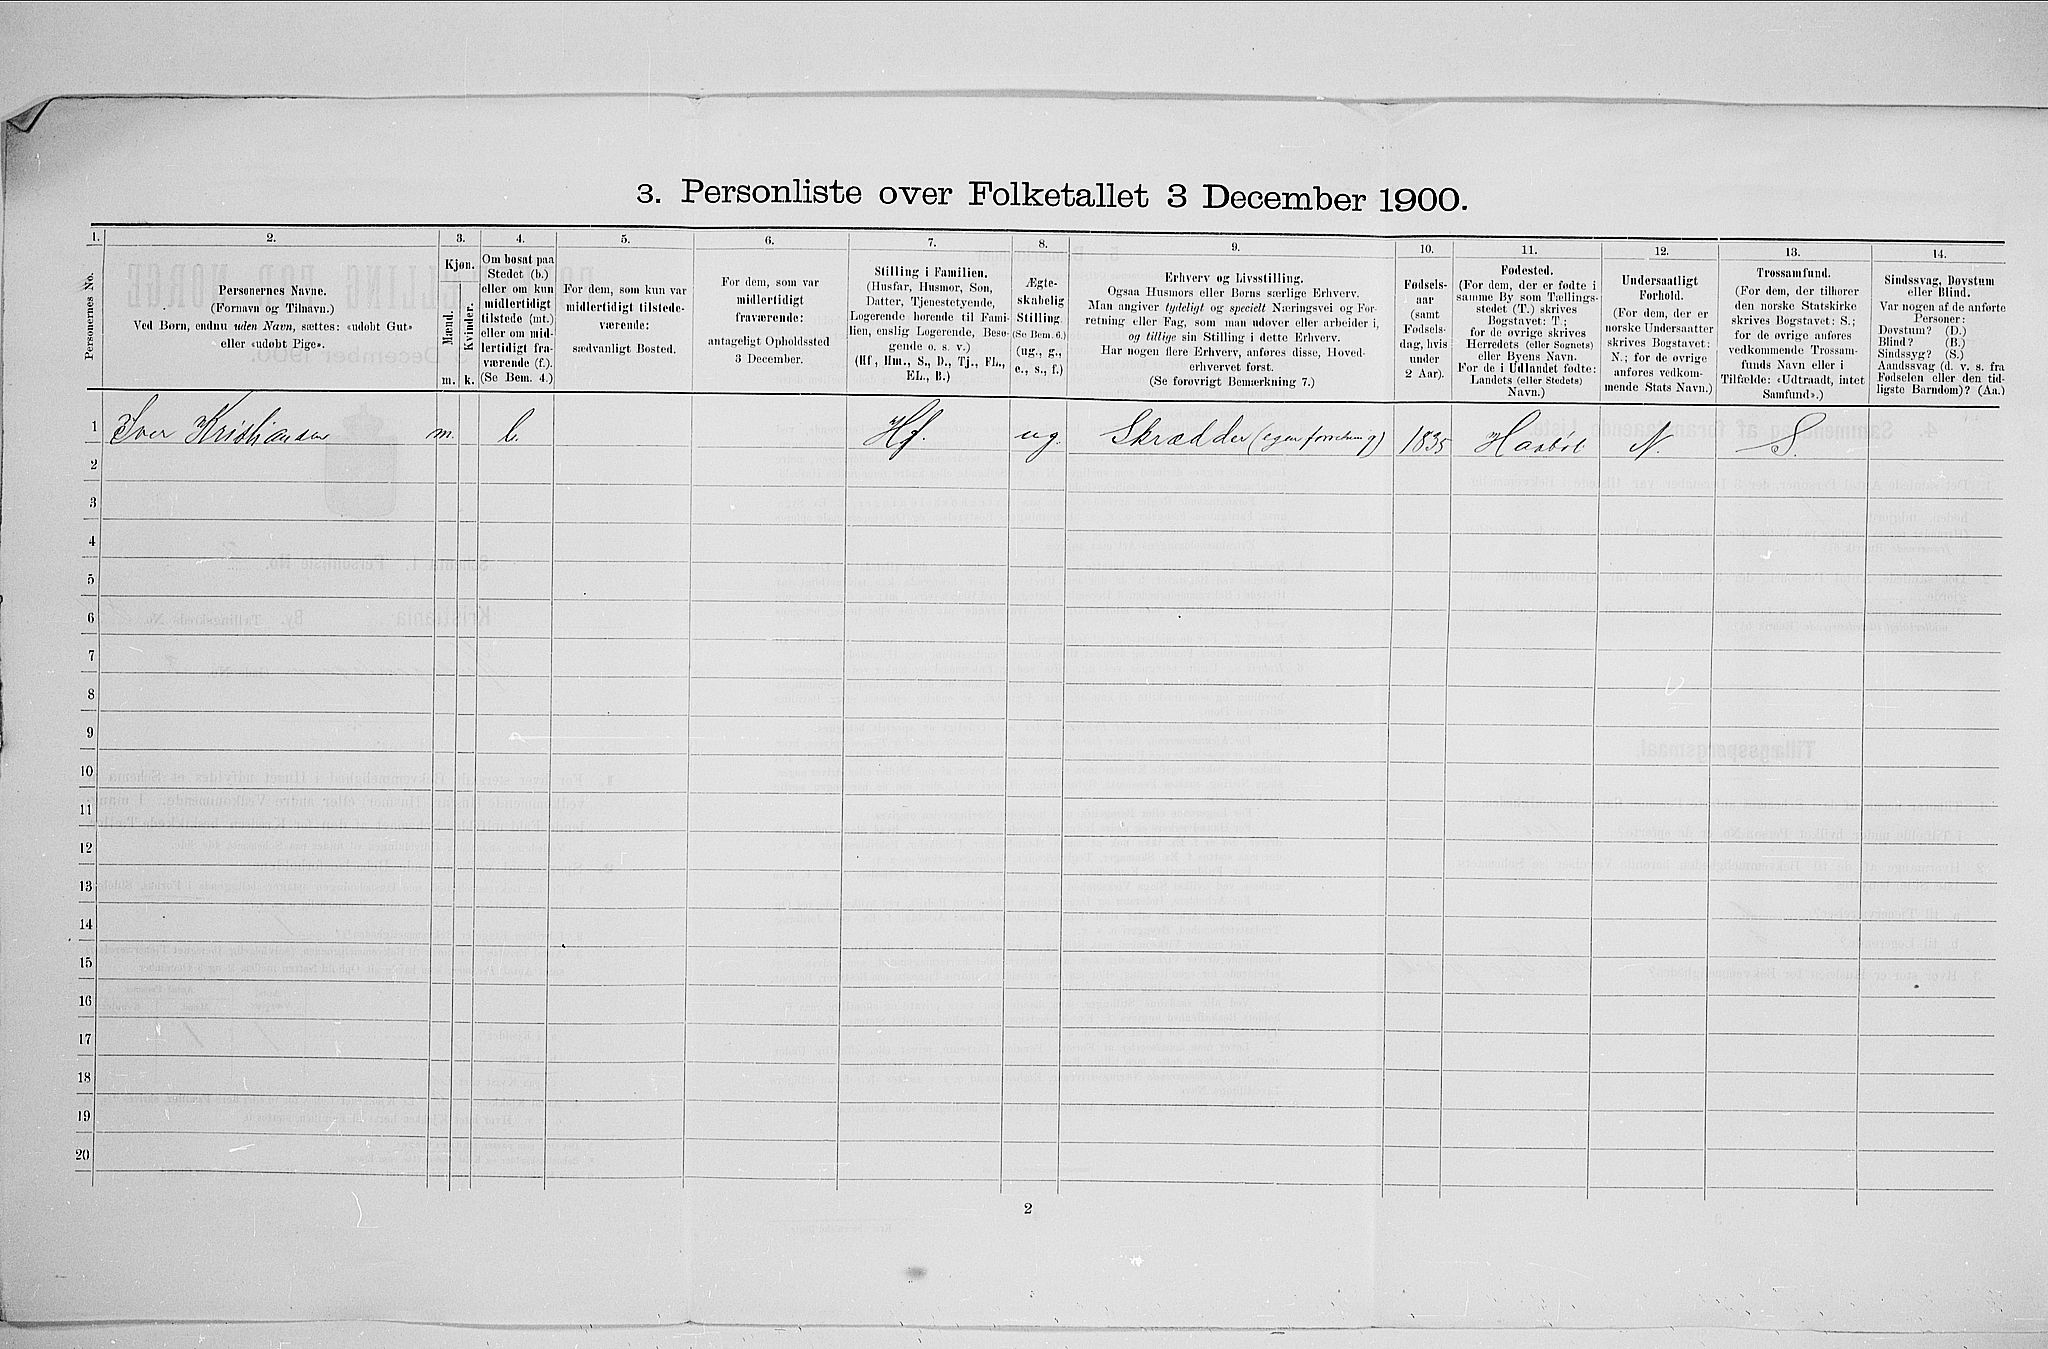 3. Personliste over Folketallet 3 December 1900.
1. 2. 3. 4. 5. 6. 7. 8. 9. 10. 11. 12. 13. 14.
Personernes No.
Personernes Navne.
(Fornavn og Tilnavn.)
Ved Børn, endnu uden Navn, sættes: «udøbt Gut»
eller «udøbt Pige».
Kjøn.
Mænd.
Kvinder.
m. k.
Om bosat paa
Stedet (b.)
eller om kun
midlertidigt
tilstede (mt.)
eller om mid-
lertidigt fra-
værende (f.).
(Se Bem. 4.)
For dem, som kun var
midlertidigt tilstede-
værende:
sædvanligt Bosted.
For dem, som var
midlertidigt
fraværende:
antageligt Opholdssted
3 December.
Stilling i Familien.
(Husfar, Husmor, Søn,
Datter, Tjenestetyende,
Logerende hørende til Fami-
lien, enslig Logerende, Besø-
gende o. s. v.)
(Hf, Hm., S., D., Tj., FL.,
EL., B.)
Ægte-
skabelig
Stilling.
(Se Bem. 6.)
(ug., g.,
e., s., f.)
Erhverv og Livsstilling.
Ogsaa Husmors eller Børns særlige Erhverv.
Man angiver tydeligt og specielt Næringsvei og For-
retning eller Fag, som man udøver eller arbeider i,
og tillige sin Stilling i dette Erhverv.
Har nogen flere Erhverv, anføres disse, Hoved-
erhvervet først.
(Se forøvrigt Bemærkning 7.)
Fødsels-
aar
(samt
Fødsels-
dag, hvis
under
2 Aar).
Fødested.
(For dem, der er fødte i
samme By som Tællings-
stedet (T.) skrives
Bogstavet: T;
for de øvrige skrives
Herredets (eller Sognets)
eller Byens Navn.
For de i Udlandet fødte:
Landets (eller Stedets)
Navn.)
Undersaatligt
Forhold.
(For dem, der er
norske Undersaatter
skrives Bogstavet:
N.; for de øvrige
anføres vedkom-
mende Stats Navn.)
Trossamfund.
(For dem, der tilhører
den norske Statskirke
skrives Bogstavet: S.;
for de øvrige anføres
vedkommende Trossam-
funds Navn eller i
Tilfælde: «Udtraadt, intet
Samfund».)
Sindssvag, Døvstum
eller Blind.
Var nogen af de anførte
Personer:
Døvstum? (D.)
Blind? (B.)
Sindssyg? (S.)
Aandssvag (d. v. s. fra
Fødselen eller den tid-
ligste Barndom)? (Aa.)
1 Iver Kristiansen m. b. Hf. ug. Skrædder (egen forretning) 1835 Haabøl N. S.
2
3
4
5
6
7
8
9
10
11
12
13
14
15
16
17
18
19
20
2